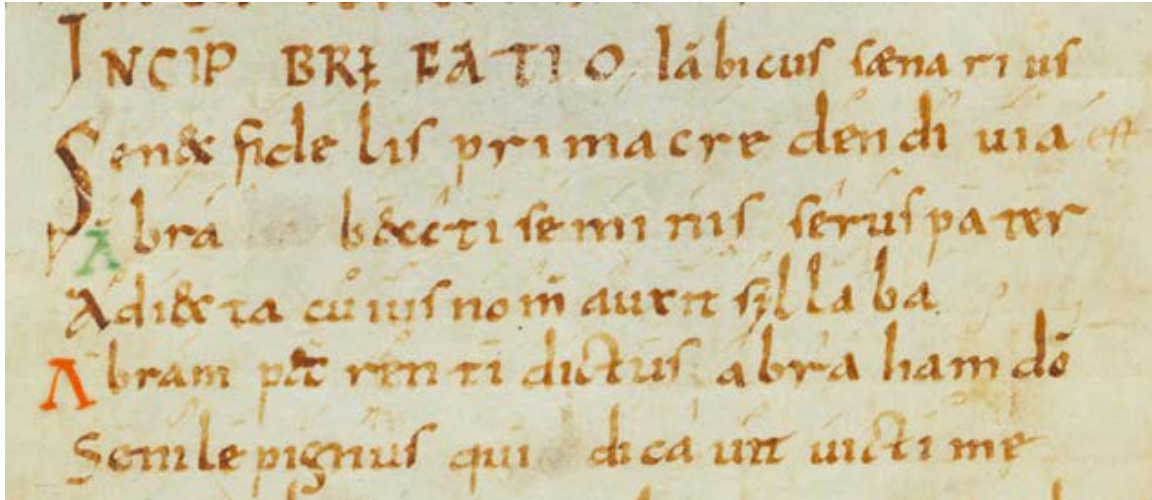 INCIP BRĘFATIO Iābicus sęnarius
Senex fidelis prima credendi uia est
Abrā beati seminis serus pater
Adiecta cuius nom̄ auxit sillaba
Abram parenti dictus abraham dō
Senile pignus qui dicauit uictime